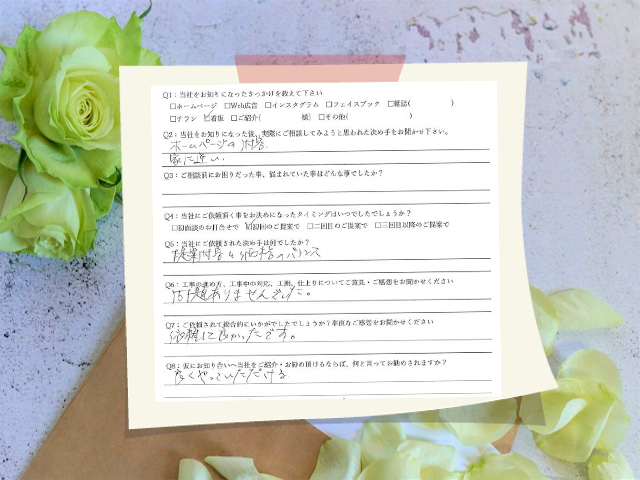 Q1：当社をお知りになったきっかけを教えて下さい
□ホームページ □Web広告 □インスタグラム □フェイスブック □雑誌( )
□チラシ ☑看板 □ご紹介( 様) □その他( )
Q2：当社をお知りになった後、実際にご相談してみようと思われた決め手をお聞かせ下さい。
ホームページの内容.
家に近い.
Q3：ご相談前にお困りだった事、悩まれていた事はどんな事でしたか？
Q4：当社にご依頼頂く事をお決めになったタイミングはいつでしたでしょうか？
□初面談のお打合せで ☑初回のご提案で □二回目のご提案で □三回目以降のご提案で
Q5：当社にご依頼された決め手は何でしたか？
提案内容と価格のバランス
Q6：工事の進め方、工事中の対応、工期、仕上りについてご意見・ご感想をお聞かせください
問題ありませんでした。
Q7：ご依頼されて総合的にいかがでしたでしょうか？率直なご感想をお聞かせください
依頼して良かったです。
Q8：仮にお知り合いへ当社をご紹介・お勧め頂けるならば、何と言ってお勧めされますか？
良くやっていただける.